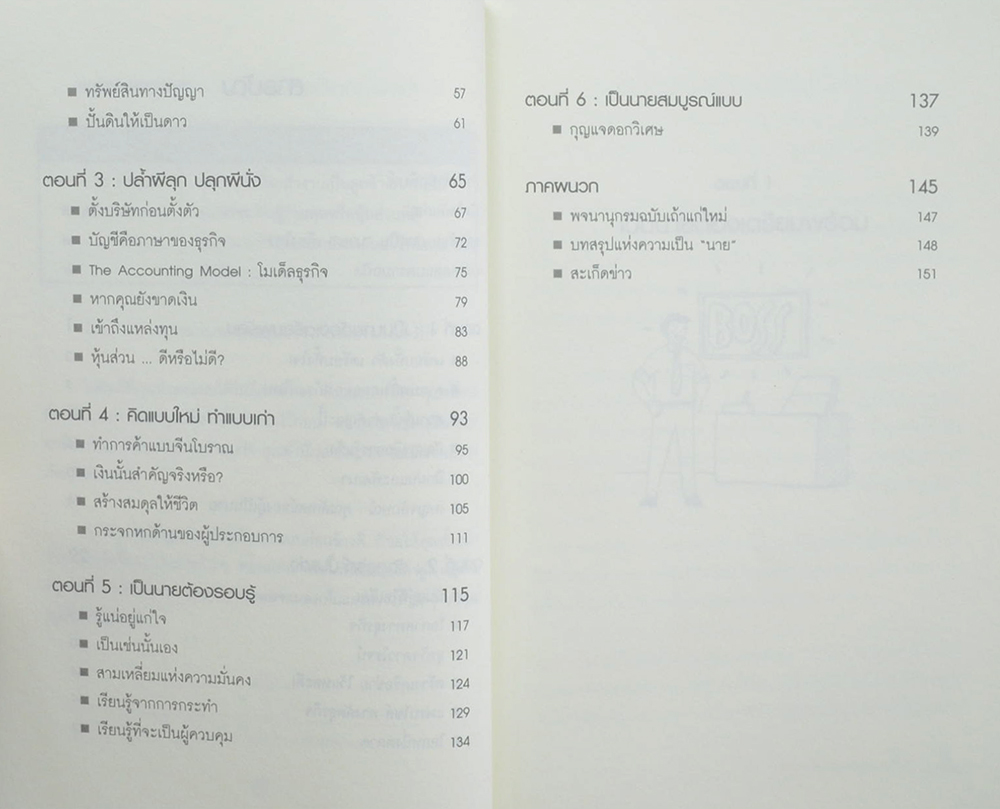 ■ ทรัพย์สินทางปัญญา 57
■ ปั้นดินให้เป็นดาว 61
ตอนที่ 3 : ปล้ำผีลุก ปลุกผีนั่ง 65
■ ตั้งบริษัทก่อนตั้งตัว 67
■ บัญชีคือภาษาของธุรกิจ 72
■ The Accounting Model : โมเด็ลธุรกิจ 75
■ หากคุณยังขาดเงิน 79
■ เข้าถึงแหล่งทุน 83
■ หุ้นส่วน ... ดีหรือไม่ดี? 88
ตอนที่ 4 : คิดแบบใหม่ ทำแบบเก่า 93
■ ทำการค้าแบบจีนโบราณ 95
■ เงินนั้นสำคัญจริงหรือ? 100
■ สร้างสมดุลให้ชีวิต 105
■ กระจกหกด้านของผู้ประกอบการ 111
ตอนที่ 5 : เป็นนายต้องรอบรู้ 115
■ รู้แน่อยู่แก่ใจ 117
■ เป็นเช่นนั้นเอง 121
■ สามเหลี่ยมแห่งความมั่นคง 124
■ เรียนรู้จากการกระทำ 129
■ เรียนรู้ที่จะเป็นผู้ควบคุม 134
ตอนที่ 6 : เป็นนายสมบูรณ์แบบ 137
■ กุญแจดอกวิเศษ 139
ภาคผนวก 145
■ พจนานุกรมฉบับเถ้าแก่ใหม่ 147
■ บทสรุปแห่งความเป็น "นาย" 148
■ สะเก็ดข่าว 151
BOSS